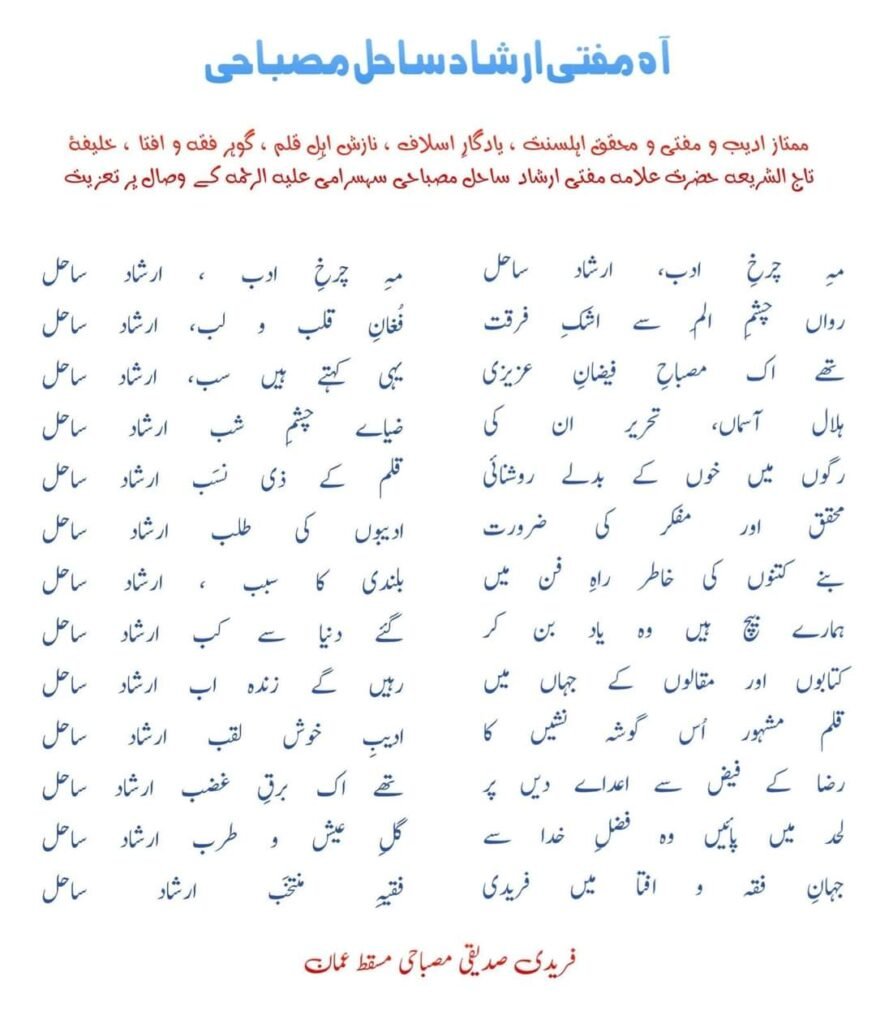 آہ مفتی ارشاد ساحل مصباحی
ممتاز ادیب و مفتی و محقق اہلسنت ، یادگارِ اسلاف ، نازش اہلِ قلم ، گوہر فقہ و افتا ، خلیفۂ
تاج الشریعہ حضرت علامہ مفتی ارشاد ساحل مصباحی سہسرامی علیہ الرحمہ کے وصال پر تعزیت
مہِ چرخِ ادب، ارشاد ساحل مہِ چرخِ ادب ، ارشاد ساحل
رواں چشمِ الم سے اشکِ فرقت فُغانِ قلب و لب، ارشاد ساحل
تھے اک مصباحِ فیضانِ عزیزی یہی کہتے ہیں سب، ارشاد ساحل
ہلال آسماں، تحریر ان کی ضیاے چشمِ شب ارشاد ساحل
رگوں میں خوں کے بدلے روشنائی قلم کے ذی نسَب ارشاد ساحل
محقق اور مفکر کی ضرورت ادیبوں کی طلب ارشاد ساحل
بنے کتنوں کی خاطر راہِ فن میں بلندی کا سبب ، ارشاد ساحل
ہمارے بیچ ہیں وہ یاد بن کر گئے دنیا سے کب ارشاد ساحل
کتابوں اور مقالوں کے جہاں میں رہیں گے زندہ اب ارشاد ساحل
قلم مشہور اُس گوشہ نشیں کا ادیبِ خوش لقب ارشاد ساحل
رضا کے فیض سے اعداے دیں پر تھے اک برقِ غضب ارشاد ساحل
لحد میں پائیں وہ فضلِ خدا سے گلِ عیش و طرب ارشاد ساحل
جہانِ فقہ و افتا میں فریدی فقیہِ منتخَب ارشاد ساحل
فریدی صدیقی مصباحی مسقط عمان